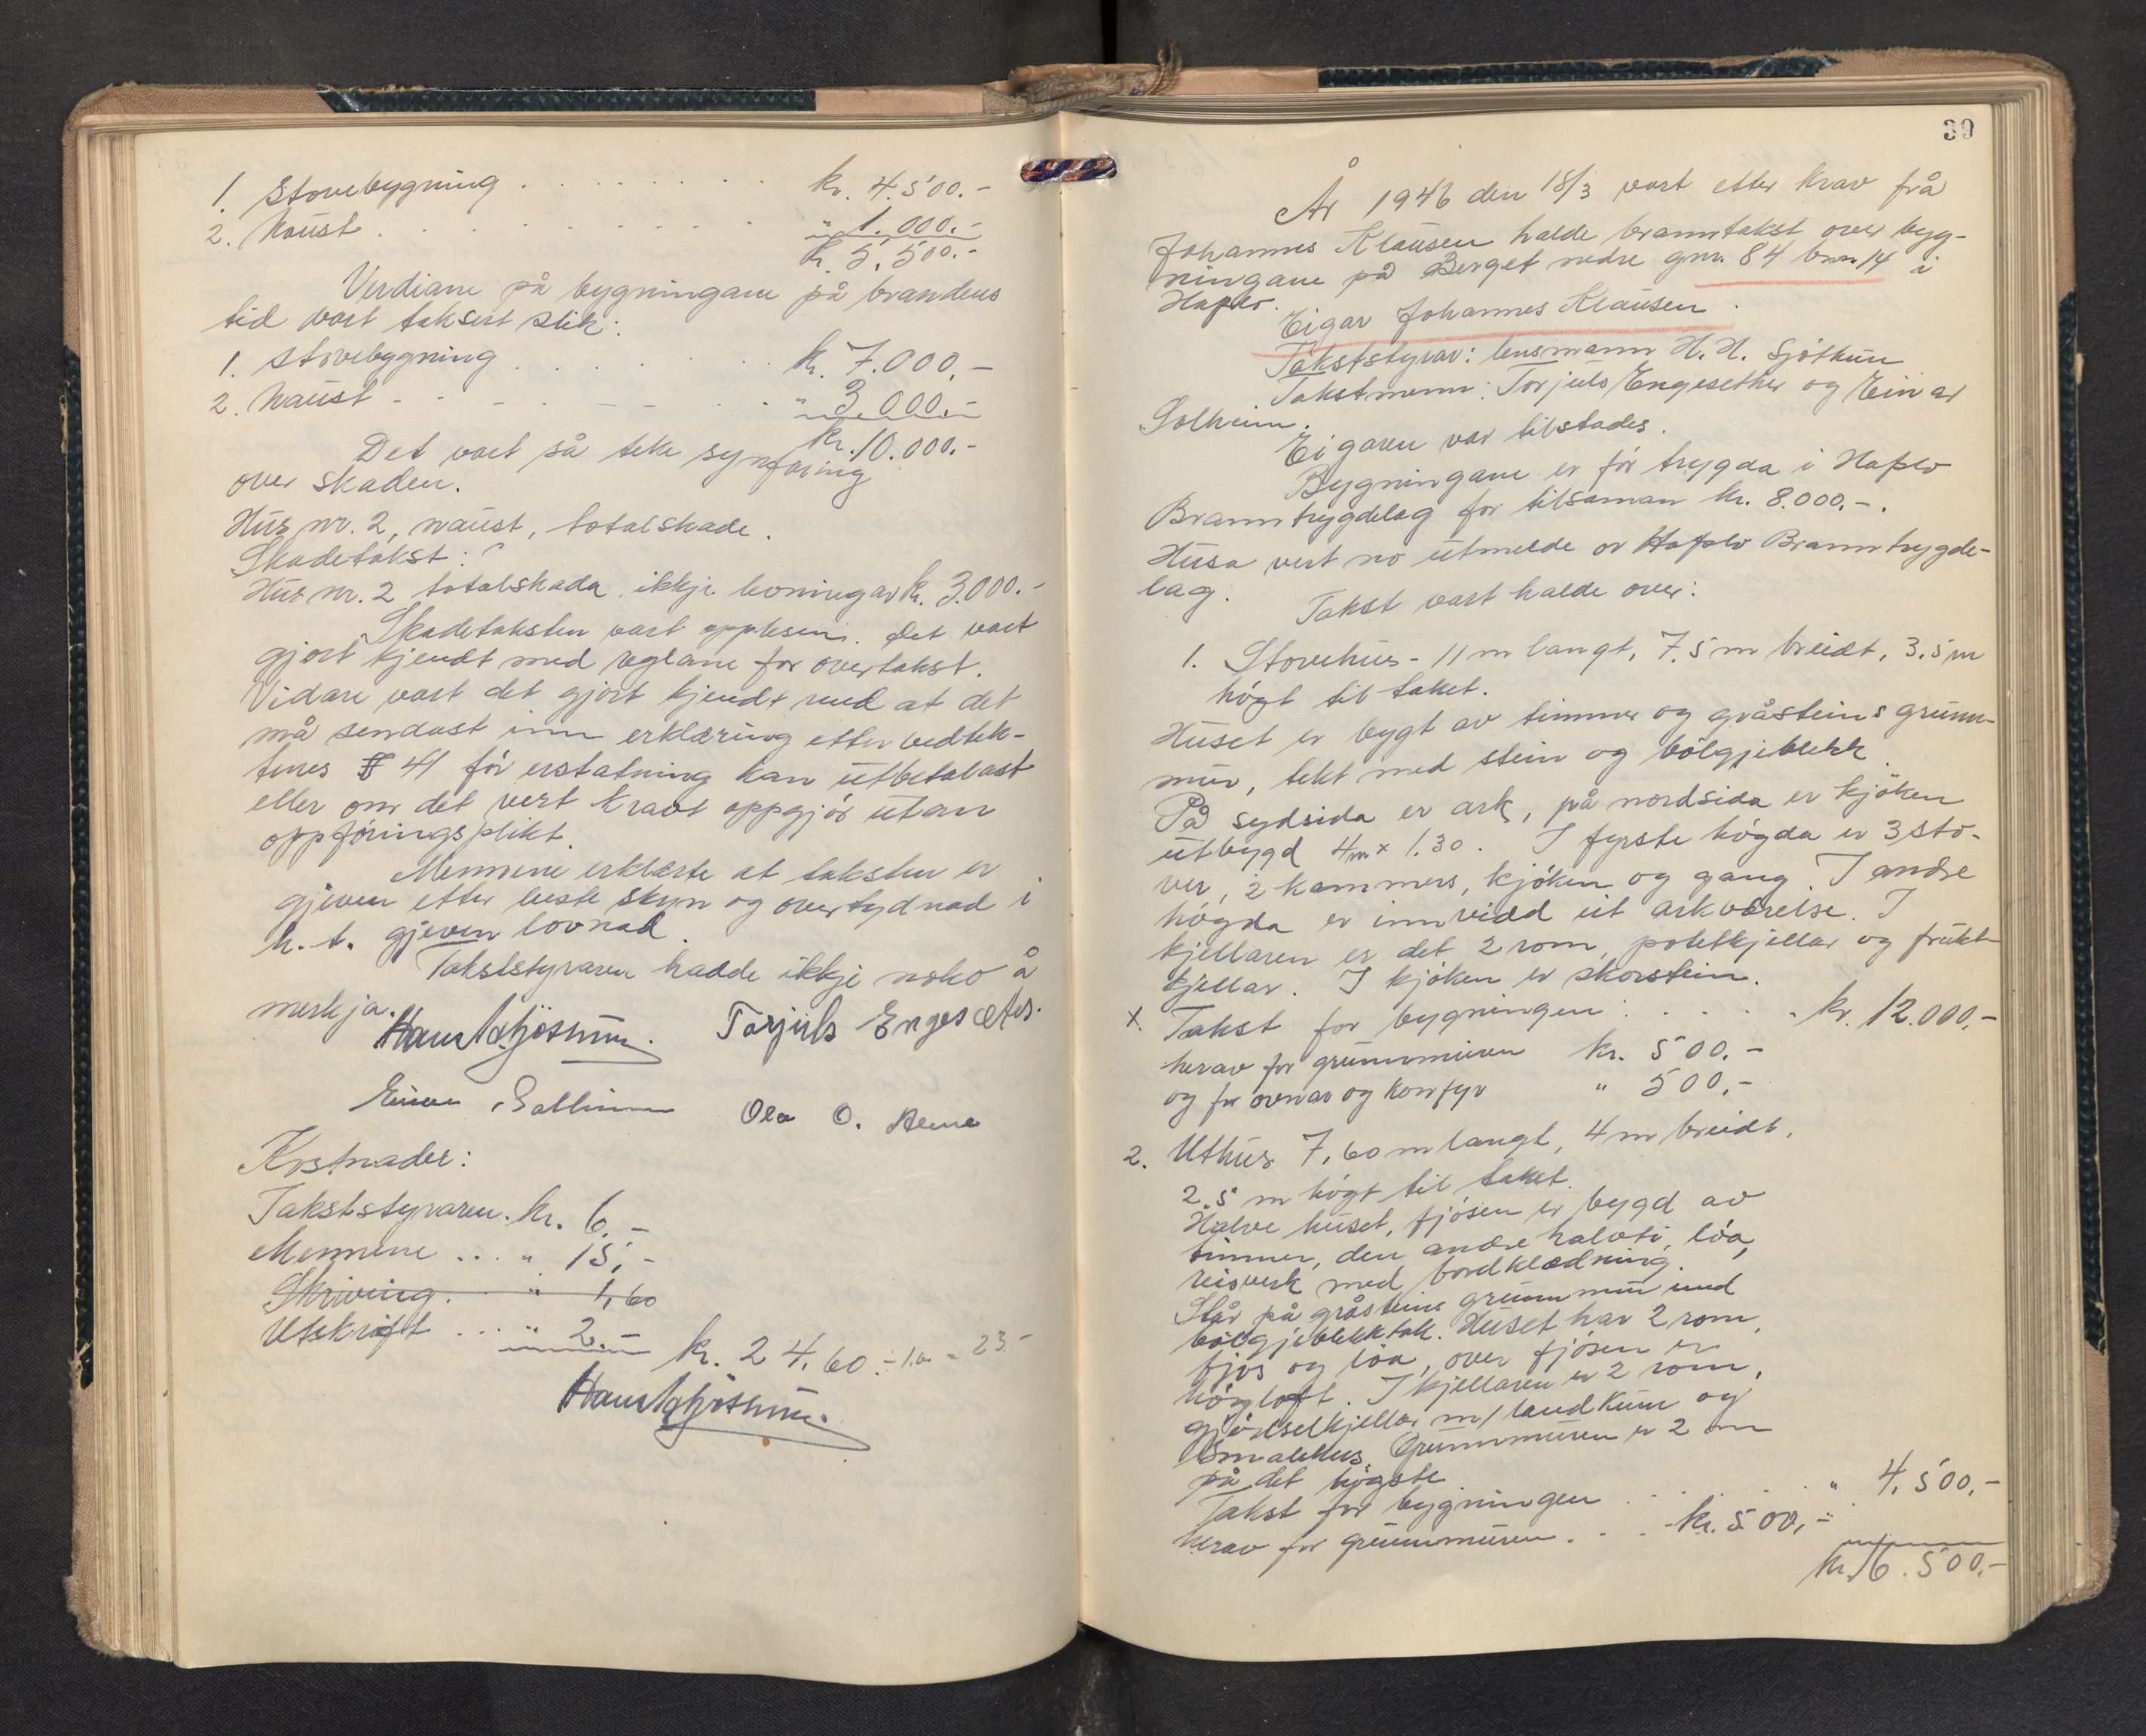 1. Stovebygning . . . . . . . . kr. 4.500.-
2. Naust . . . . . . . . . . . " 1.000.-
kr. 5.500.-
Verdiane på bygningane på brandens
tid vart taksert slik:
1. Stovebygning . . . . . . kr. 7.000.-
2. Naust - - - - - - . " 3 000.-
kr. 10.000.-
Det vart så teke synfaring
over skaden.
Hus nr. 2, naust, totalskade.
Skadetakst:
Hus nr. 2 totalskada, ikkje levningar kr. 3.000.-
Skadetaksten vart opplesen. Det vart
gjort kjendt med reglane for overtakst.
Vidare vart det gjort kjendt med at det
må sendast inn erklæring etter vedtek-
tenes § 41 för erstatning kan utbetalast
eller om det vert kravt oppgjör utan
oppföringsplikt.
Mennene erklærte at taksten er
gjeven etter beste skyn og overtydnad i
h.t. gjeven lovnad.
Takststyraren hadde ikkje noko å
merkja.
Torjuls Engesæter.
Ola O.
Kostnader:
Takststyraren. kr. 6,-
Mennene ... " 15,-
Skriving. " 1,60
Utskrift ... " 2.-
kr. 24,60 - 1,60 = 23.-
39
År 1946 den 18/3 vart etter krav frå
Johannes Klausen halde branntakst over byg-
ningane på Berget nedre gnr. 84 bnr 14 i
Hafslo.
Eigar Johannes Klausen.
Takststyrar: lensmann H. H. Sjöthun
Takstmenn: Torjuls Engesether og Einar
Solheim.
Eigaren var tilstades.
Bygningane er för trygda i Hafslo
Branntrygdelag for tilsaman kr. 8.000.-.
Husa vert no utmelde or Hafslo Branntrygde-
lag.
Takst vart halde over:
1. Stovehus - 11 m langt, 7,5 m breidt, 3.5 m
högt til taket.
Huset er bygt av timmer og gråsteins grunn-
mur, tekt med stein og bölgjeblekk.
På sydsida er ark, på nordsida er kjöken
utbygd 4m x 1.30. I fyrste högda er 3 sto-
ver, 2 kammers, kjöken og gang. I andre
högda er innreidd eit arkværelse. I
kjellaren er det 2 rom, potetkjellar og frukt-
kjellar. I kjöken er skorstein.
x. Takst for bygningen: . . . . kr. 12.000,-
herav for grunnmuren kr. 500.-
og for ovnar og komfyr " 500,-
2. Uthus 7,60 m langt, 4 m breidt,
2.5 m högt til taket.
Halve huset, fjösen er bygd av
timmer, den andre halvti, löa,
reisverk med bordklædning.
Står på gråsteins grunnmur med
bölgjeblekktak. Huset har 2 rom,
fjös og löa, over fjösen er
höyloft. I kjellaren er 2 rom,
gjödselkjellar m/ landkum og
smalehus. Grunnmuren er 2 m
på det högste.
Takst for bygningen . . . . " 4.500.-
herav for grunnmuren . . . kr. 500,-
kr. 16.500.-